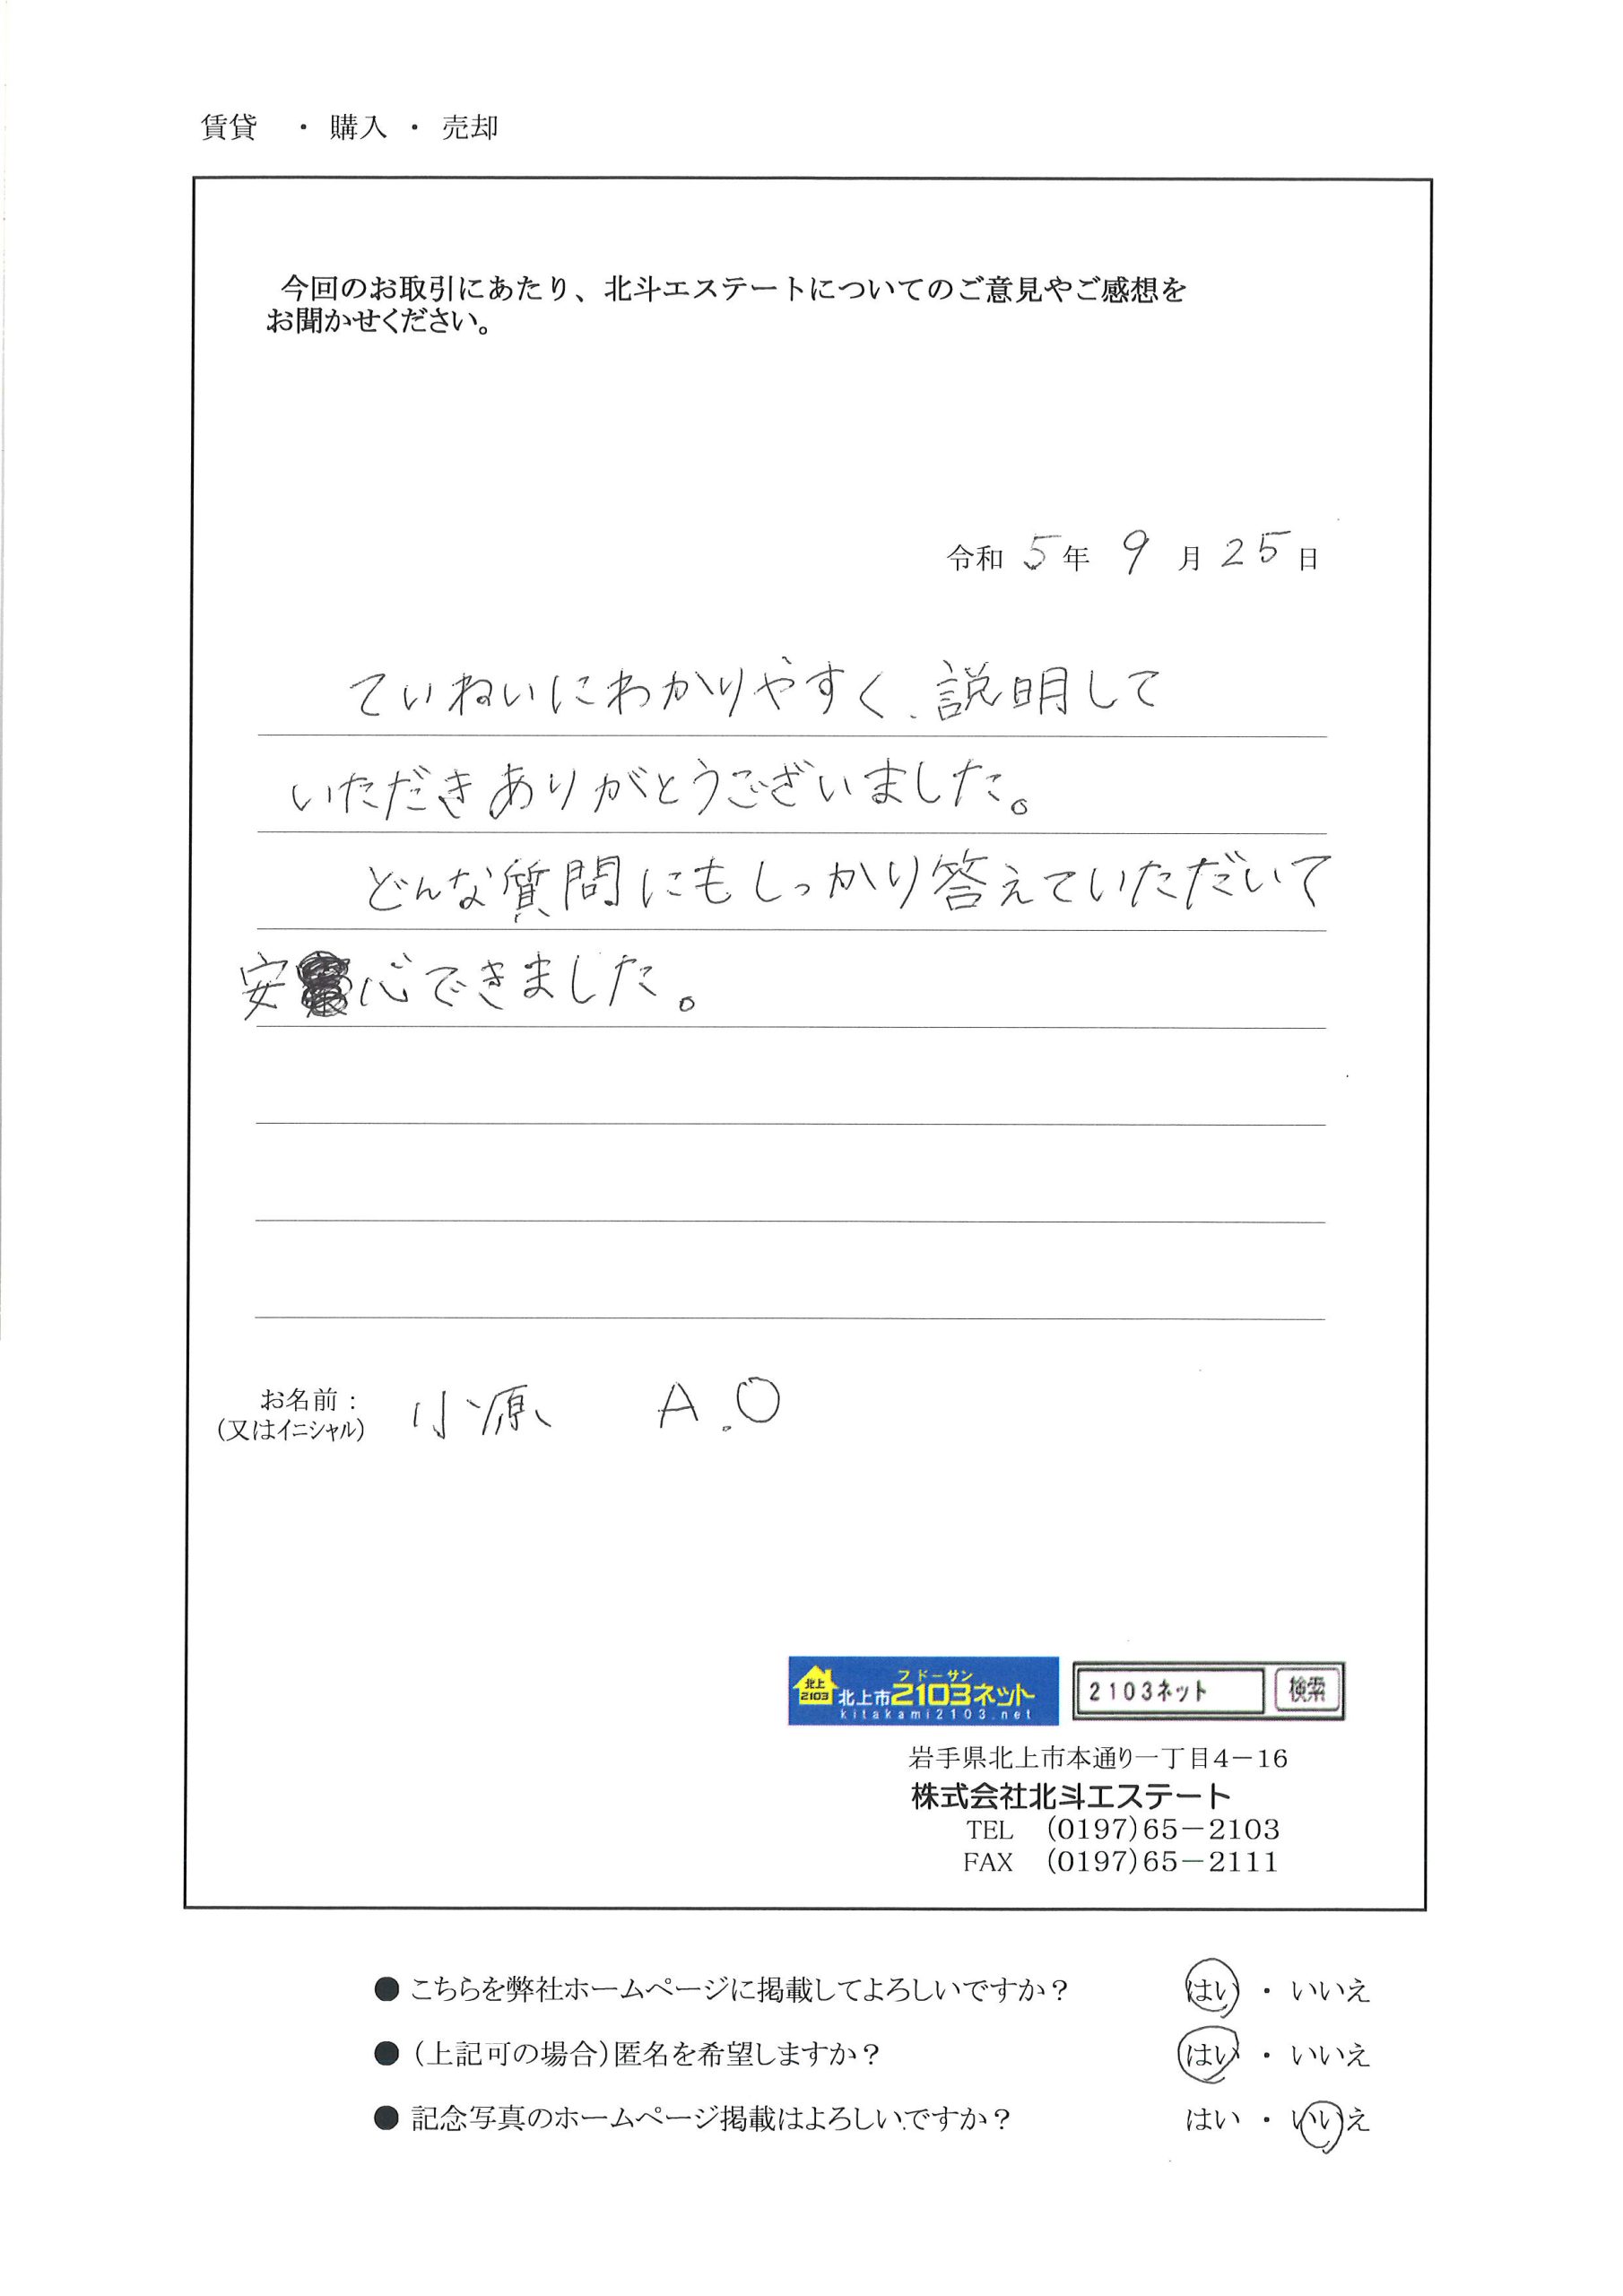 賃貸　・ 購入 ・ 売却
今回のお取引にあたり、北斗エステートについてのご意見やご感想を
お聞かせください。
令和 5 年 9 月 25 日
ていねいにわかりやすく、説明して
いただきありがとうございました。
どんな質問にもしっかり答えていただいて
安心できました。
お名前： 小原　A.O
（又はイニシャル）
北上 2103 北上市 フドーサン 2103ネット kitakami2103.net 2103ネット 検索
岩手県北上市本通り一丁目4－16
株式会社北斗エステート
TEL　(0197)65－2103
FAX　(0197)65－2111
● こちらを弊社ホームページに掲載してよろしいですか？　はい ・ いいえ
● （上記可の場合）匿名を希望しますか？　はい ・ いいえ
● 記念写真のホームページ掲載はよろしいですか？　はい ・ いいえ